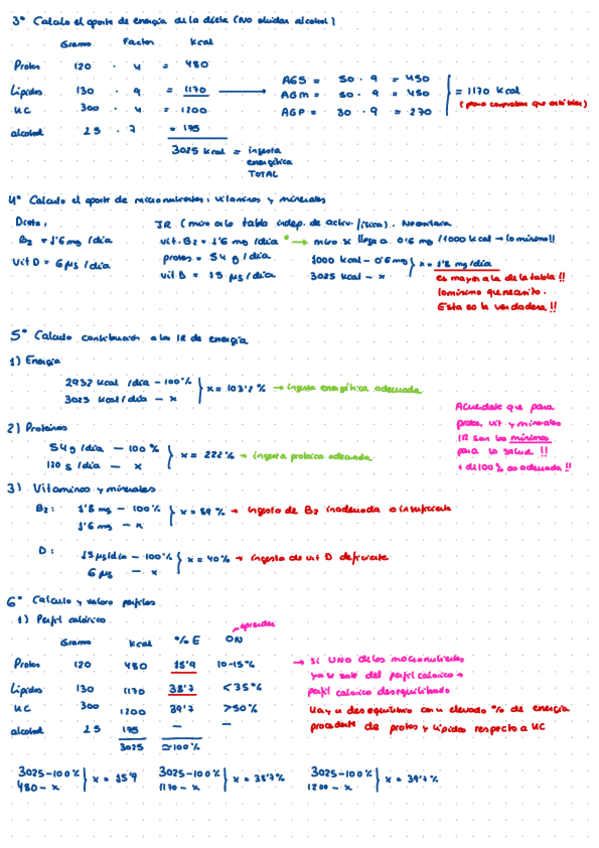 3º Calculo el aporte de energía de la dieta (No olvidar alcohol)
Gramos Factor Kcal
Protes 120 · 4 = 480
Lípidos 130 · 9 = 1170 → AGS = 50 · 9 = 450
AGM = 50 · 9 = 450
AGP = 30 · 9 = 270
= 1170 kcal
(para comprobar que está bien)
HC 300 · 4 = 1200
alcohol 25 · 7 = 175
3025 kcal = ingesta
energética
TOTAL
4º Calculo el aporte de micronutrientes: vitaminas y minerales
Dieta:
B₂ = 1'6 mg /día
Vit D = 6 µg /día
IR (miro a la tabla indep. de activ. física).
vit. B₂ = 1'6 mg /día * → miro si llega a 0'6 mg /1000 kcal → lo mínimo!!
protes = 54 g /día
vit. D = 15 µg /día
1000 kcal - 0'6 mg
3025 kcal - x
x = 1'8 mg/día
es mayor a la de la tabla !!
lo mínimo que necesito.
Esta es la verdadera !!
5º Calculo contribución a las IR de energía
1) Energía
2932 kcal /día - 100%
3025 kcal/día - x
x = 103'2 % → ingesta energética adecuada
2) Proteínas
54 g /día - 100 %
120 g /día - x
x = 222% → ingesta proteica adecuada
Acuérdate que para
protes, vit y minerales
IR son los mínimos
para la salud !!
+ de 100% es adecuada !!
3) Vitaminas y minerales
B₂: 1'8 mg - 100%
1'6 mg - x
x = 89 % → ingesta de B₂ inadecuada o insuficiente
D: 15 µg/día - 100%
6 µg - x
x = 40% → ingesta de vit D deficiente
6º Calculo y valoro perfiles
1) Perfil calórico
aprender
Gramos Kcal % E ON
Protes 120 480 15'9 10-15%
Lípidos 130 1170 38'7 <35%
HC 300 1200 39'7 >50%
alcohol 25 175 - -
3025 ≃100%
→ si UNO de los macronutrientes
ya se sale del perfil calórico →
perfil calórico desequilibrado
Hay un desequilibrio con un elevado % de energía
procedente de protes y lípidos respecto a HC
3025-100%
480 - x
x = 15'9
3025-100%
1170 - x
x = 38'7%
3025-100%
1200 - x
x = 39'7%